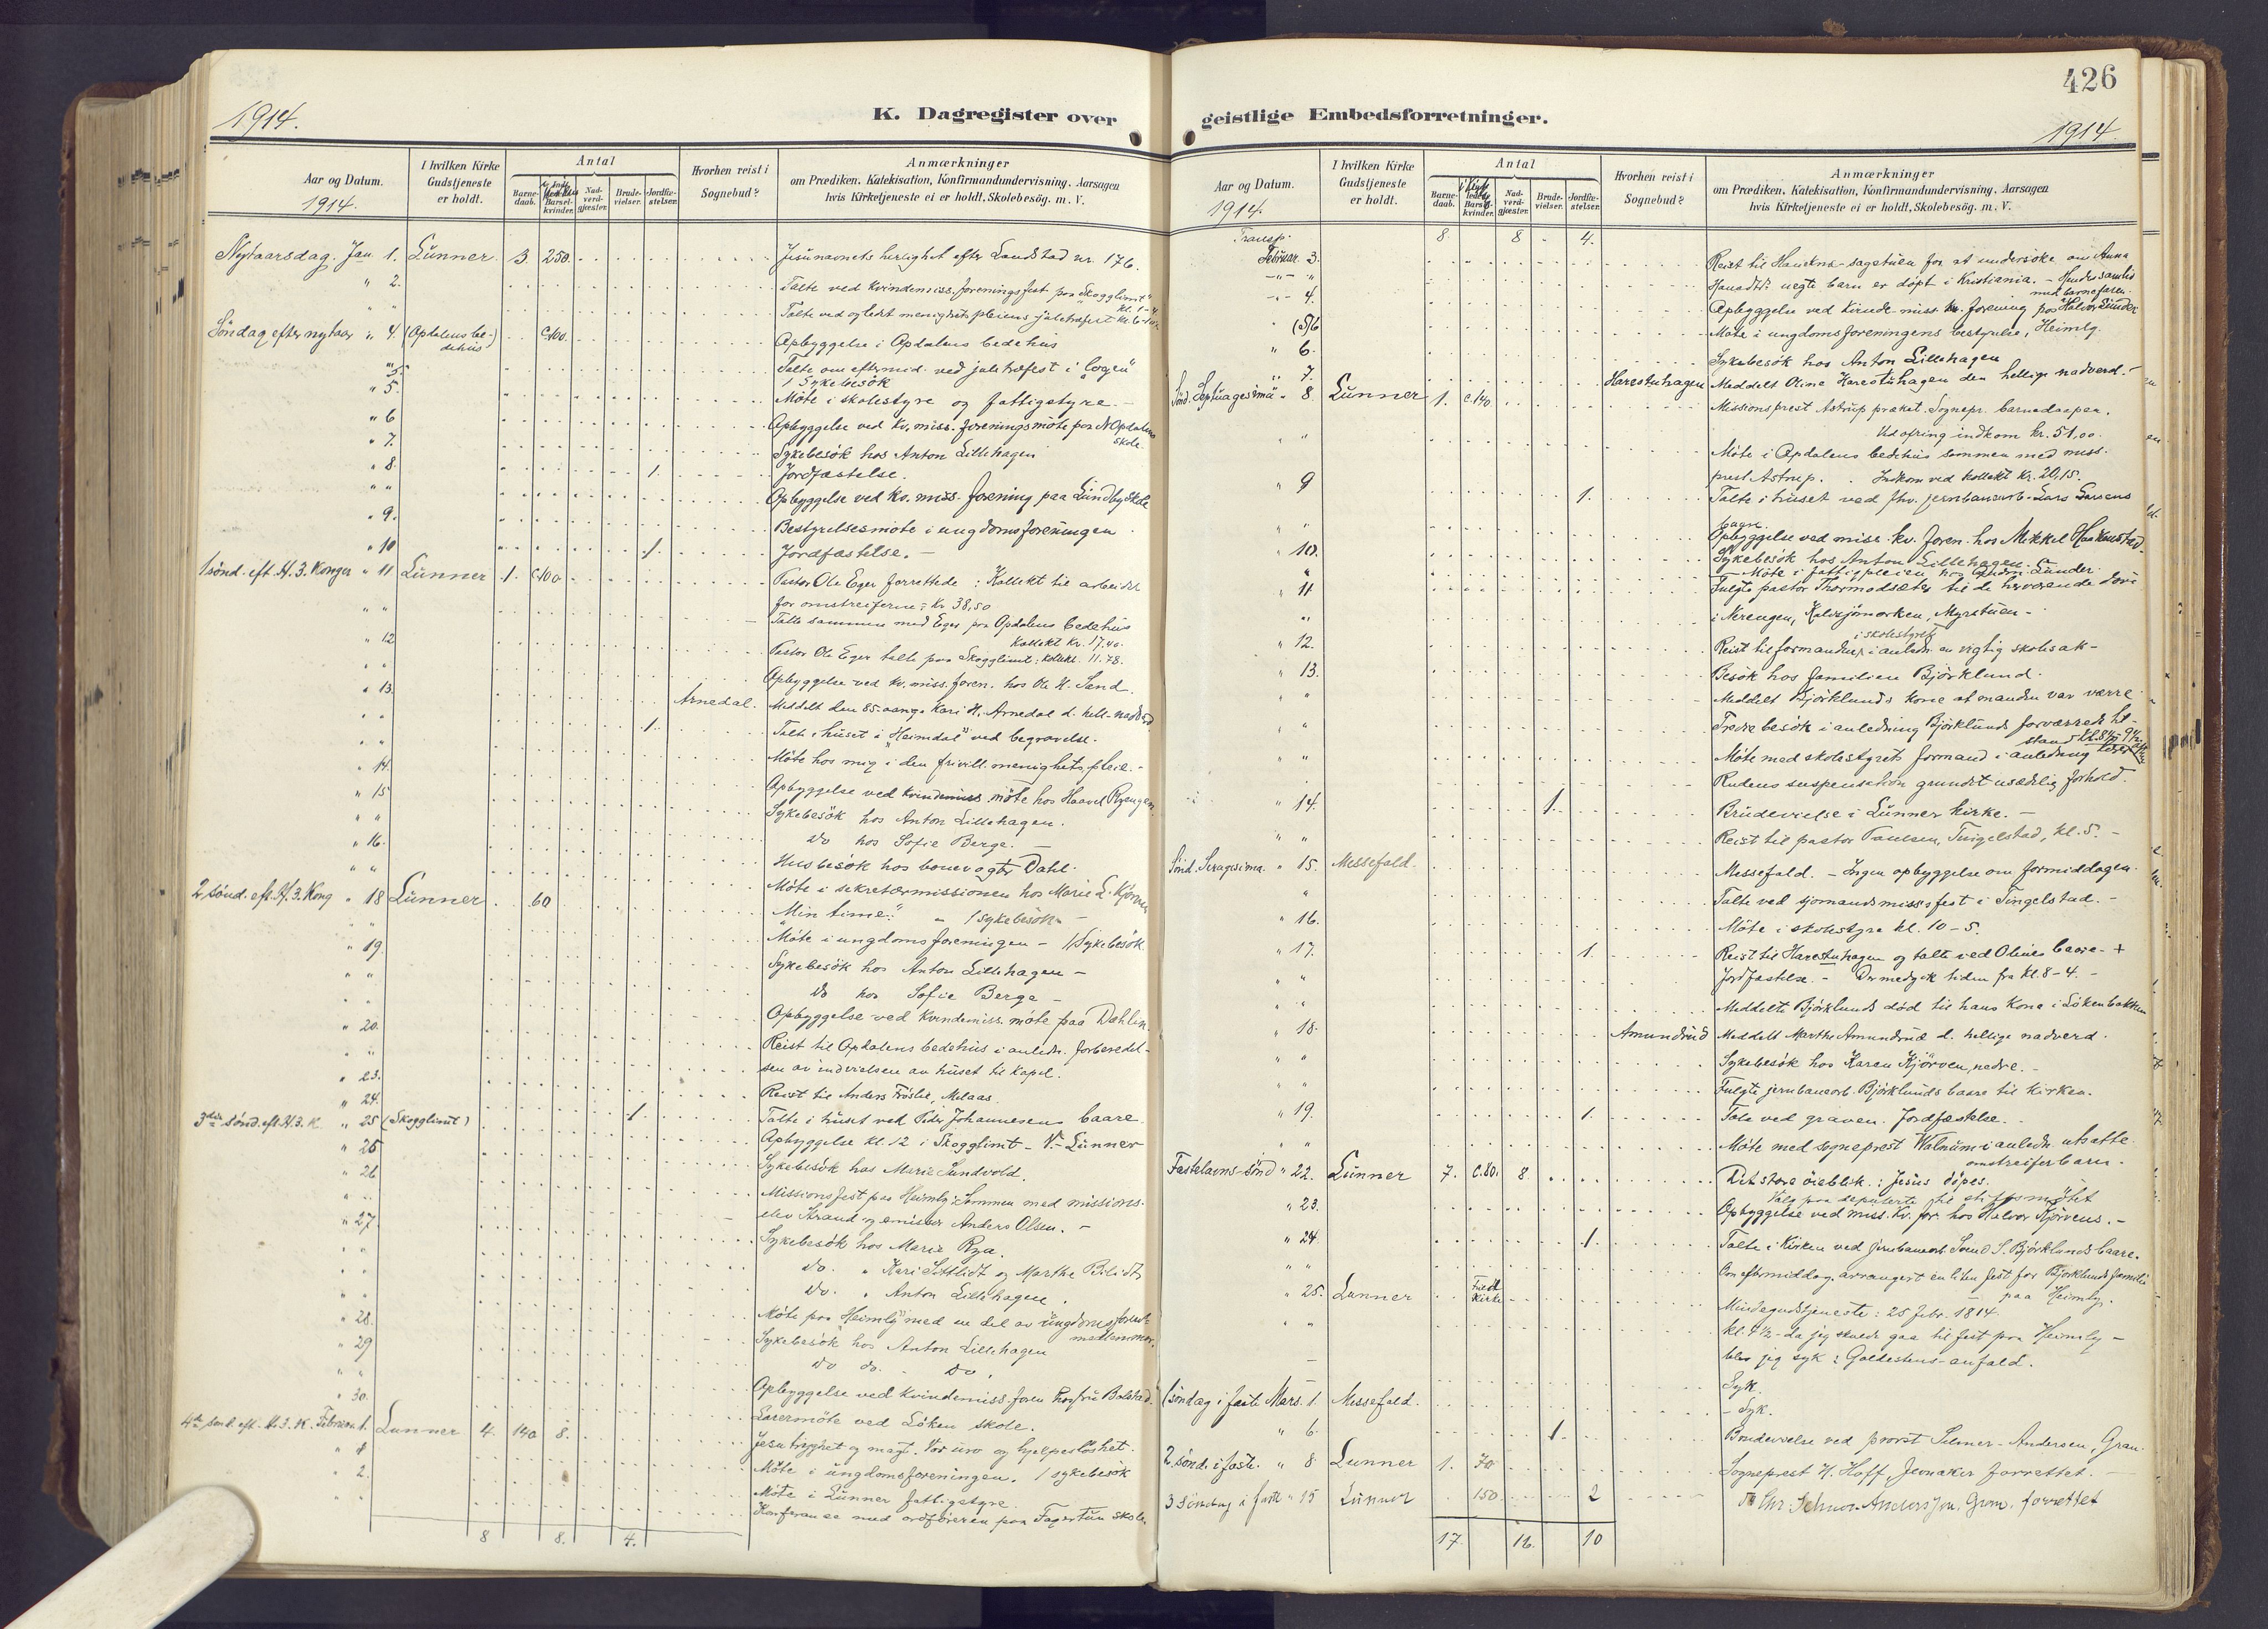 426
1914.
K. Dagregister over
Aar og Datum.
1914.
I hvilken Kirke Gudstjeneste er holdt.
Antal
Barne-daab.
Barsel-kvinder.
Nad-verd-gjæster.
Brude-vielser.
Jordfæ-stelser.
Hvorhen reist i Sognebud?
Anmærkninger
om Prædiken, Katekisation, Konfirmandundervisning, Aarsagen
hvis Kirketjeneste ei er holdt, Skolebesög. m. V.
Nytaarsdag. Jan. 1. Lunner. 3. 250. Jesunavnets herlighet efter Landstad nr. 176.
" 2. Talte ved kvindemiss.foreningsfest paa "Skogglimt"
Talte ved og ledet menighetspleiens juletræfest
Söndag efter nytaar " 4. (Opdalens be-dehus) c.100. Opbyggelse i Opdalens bedehus
Talte om eftermid. ved juletræfest i "Logen"
1 Sykebesök
" 5. Möte i skolestyre og fattigstyre.
" 6 Opbyggelse ved kv. miss. foreningsmöte paa N. Opdalens skole.
" 7. Sykebesök hos Anton Lillehagen
" 8. 1. Jordfæstelse.
" " Opbyggelse ved kv. miss. forening paa Lundby Skole
" 9. Bestyrelsesmöte i ungdomsforeningen
" 10 1. Jordfæstelse. -
1 sönd. eft. H. 3. Konger " 11 Lunner 1. c.100 Pastor Ole Eger forrettede : Kollekt til arbeidet
for omstreiferne : Kr. 38,50
" " Talte sammen med Eger paa Opdalens bedehus
Kollekt Kr. 17,40.
" 12 Pastor Ole Eger talte paa Skogglimt. Kollekt. 11.78.
" " Opbyggelse ved kv. miss. foren. hos Ole H. Sand.
" 13. Arnedal. Meddelt den 85-aarige Kari H. Arnedal d. hell. nadverd
" " 1. Talte i huset i "Heimdal" ved begravelse.
" " Möte hos mig i den frivill. menighetspleie. -
" 14. Opbyggelse ved kvindemiss. möte hos Haavel Ryengen
" 15 Sykebesök hos Anton Lillehagen.
" " Do hos Sofie Berge. -
" 16. Husbesök hos Dahl.
" " Möte i sekretærmissionen hos Marie L. Kjörven
2 sönd. eft. H. 3. Kong " 18 Lunner 60 "Min time." 1 sykebesök -
Möte i ungdomsforeningen - 1 Sykebesök
" 19. Sykebesök hos Anton Lillehagen -
" " Do hos Sofie Berge -
" " Opbyggelse ved Kvindemiss. möte paa Dæhlen
" 20. Reist til Opdalens bedehus i anledn. forberedel-
" " sen av indvielsen av huset til kapel.
" 23. Reist til Anders Fröslie, Molaas.
" 24. 1. Talte i huset ved Peder Johannesens baare.
3die sönd. eft. H. 3. K. " 25 (Skogglimt) Opbyggelse kl. 12 i Skogglimt - V. Lunner
" 25 Sykebesök hos Marie Sundvold.
" 26 Missionsfest paa Heimly : Sammen med missions-
elev Strand og emissær Anders Olsen. -
" 27. Sykebesök hos Marie Rya.
" " Do. " Kari Slettlidt og Marthe Bilidt
" " Do. " Anton Lillehagen.
" 28. Möte paa "Heimly" med en del av ungdomsforen. medlemmer.
" 29 Sykebesök hos Anton Lillehagen
" " Do do. Do.
" 30. Opbyggelse ved kvindemiss.foren. hos fru Bolstad.
Lærermöte ved Löken skole.
4de sönd. eft. H. 3. K. Februar 1. Lunner 4. 140 8. Jesu tryghet og magt. Vor uro og hjelpelöshet.
Möte i ungdomsforeningen. 1 sykebesök
" 2. Möte i Lunner fattigstyre.
Konferanse med ordföreren paa Fagertun skole.
8 8. 4.
geistlige Embedsforretninger.
1914.
Aar og Datum.
1914.
I hvilken Kirke Gudstjeneste er holdt.
Antal
Barne-daab.
Barsel-kvinder.
Nad-verd-gjæster.
Brude-vielser.
Jordfæ-stelser.
Hvorhen reist i Sognebud?
Anmærkninger
om Prædiken, Katekisation, Konfirmandundervisning, Aarsagen
hvis Kirketjeneste ei er holdt, Skolebesög. m. V.
Transp. 8. 8 - 4.
Februar. 3. Reist til sagstuen for at undersöke om Anna
uegte barn er döpt i Kristiania. - Hendes samliv med barnefaren.
" 4. Opbyggelse ved kvinde-miss. forening paa Halvor Lunder
(5) Möte i ungdomsforeningens bestyrelse, Heimly.
" 6. Sykebesök hos Anton Lillehagen
" 7. Harestuhagen Meddelt Oline Harestuhagen den hellige nadverd. -
Sönd. Septuagesima " 8. Lunner 1. c.140 Missionsprest Astrup præket. Sognepr. barnedaapen.
Ved ofring indkom kr. 51,00.
" " Möte i Opdalens bedehus sammen med miss.
prest Astrup. Indkom ved kollekt Kr. 20,15.
" 9 1. Talte i huset ved fhv. jernbanearb. Lars Larsens
baare.
" " Opbyggelse ved miss. kv. foren. hos Mikkel Haakenstad.
" 10. Sykebesök hos Anton Lillehagen.
Möte i fattigpleien hos Lunder.
" 11. Fulgte pastor Thormodsæter til de herværende döve
" " i Nerengen, Kalvsjömorken, Myrstuen -
" 12. Reist til formanden i skolestyret i anledn. en vigtig skolesak -
" 13. Besök hos familien Björklund.
" " Meddelt Björklunds kone at manden var værre
" " Tredie besök i anledning Björklunds forværrede til-
stand
" " Möte med skolestyrets formand i anledning lærer
Rudens suspensation grundet usædelig forhold.
" 14. 1. Brudevielse i Lunner kirke. -
" " Reist til pastor Paulsen, Tingelstad, kl. 5. -
Sönd. Sexagesima. " 15. Messefald. Messefald. - Ingen opbyggelse om formiddagen.
" Talte ved sjömandsmiss.fest i Tingelstad. -
" 16. Möte i skolestyre kl. 10 - 5.
" 17. 1. Reist til Harestuhagen og talte ved Olines baare - +
" " Jordfæstelse. - Dermed gik tiden fra kl. 8 - 4. -
" " Meddelte Björklunds död til hans kone i Lökenbakken
" 18. Amundrud Meddelt Marthe Amundrud d. hellige nadverd.
" " Sykebesök hos Karen Kjörven, nedre. -
" " Fulgte jernbanearb. Björklunds baare til kirken.
" 19. 1. Tale ved graven. Jordfæstelse. -
" " Möte med sogneprest Walnum i anledn. utsatte
omstreiferbarn.
Fastelavns-sönd " 22. Lunner 7. c.80. 8. Det store öieblik : Jesus döpes.
Valg paa deputerte til stiftsmötet
" 23. Opbyggelse ved miss. kv. for. hos Halvor Kjörvens. -
" 24. 1. Talte i Kirken ved jernbanearb. Svend S. Björklunds baare.
" " Om eftermiddag. arrangert en liten fest for Björklunds familie
paa Heimly.
" 25. Lunner Fuld kirke Mindegudstjeneste : 25 Febr. 1814.
" " kl. 4½ - da jeg skulde gaa til fest paa Heimly -
blev jeg syk : Galdestens-anfald.
Syk.
1 söndag i faste Mars. 1. Messefald. - Syk.
" 6. 1. Brudevielse ved provst Selmer-Andersen, Gran.
2. sönd. i faste. " 8 Lunner 1. 70 Sogneprest H. Hoff, Jevnaker forrettet. -
3 söndag i faste " 15 Lunner 150. 2 Selmer Andersen, Gran, forrettet
17. 16. 10